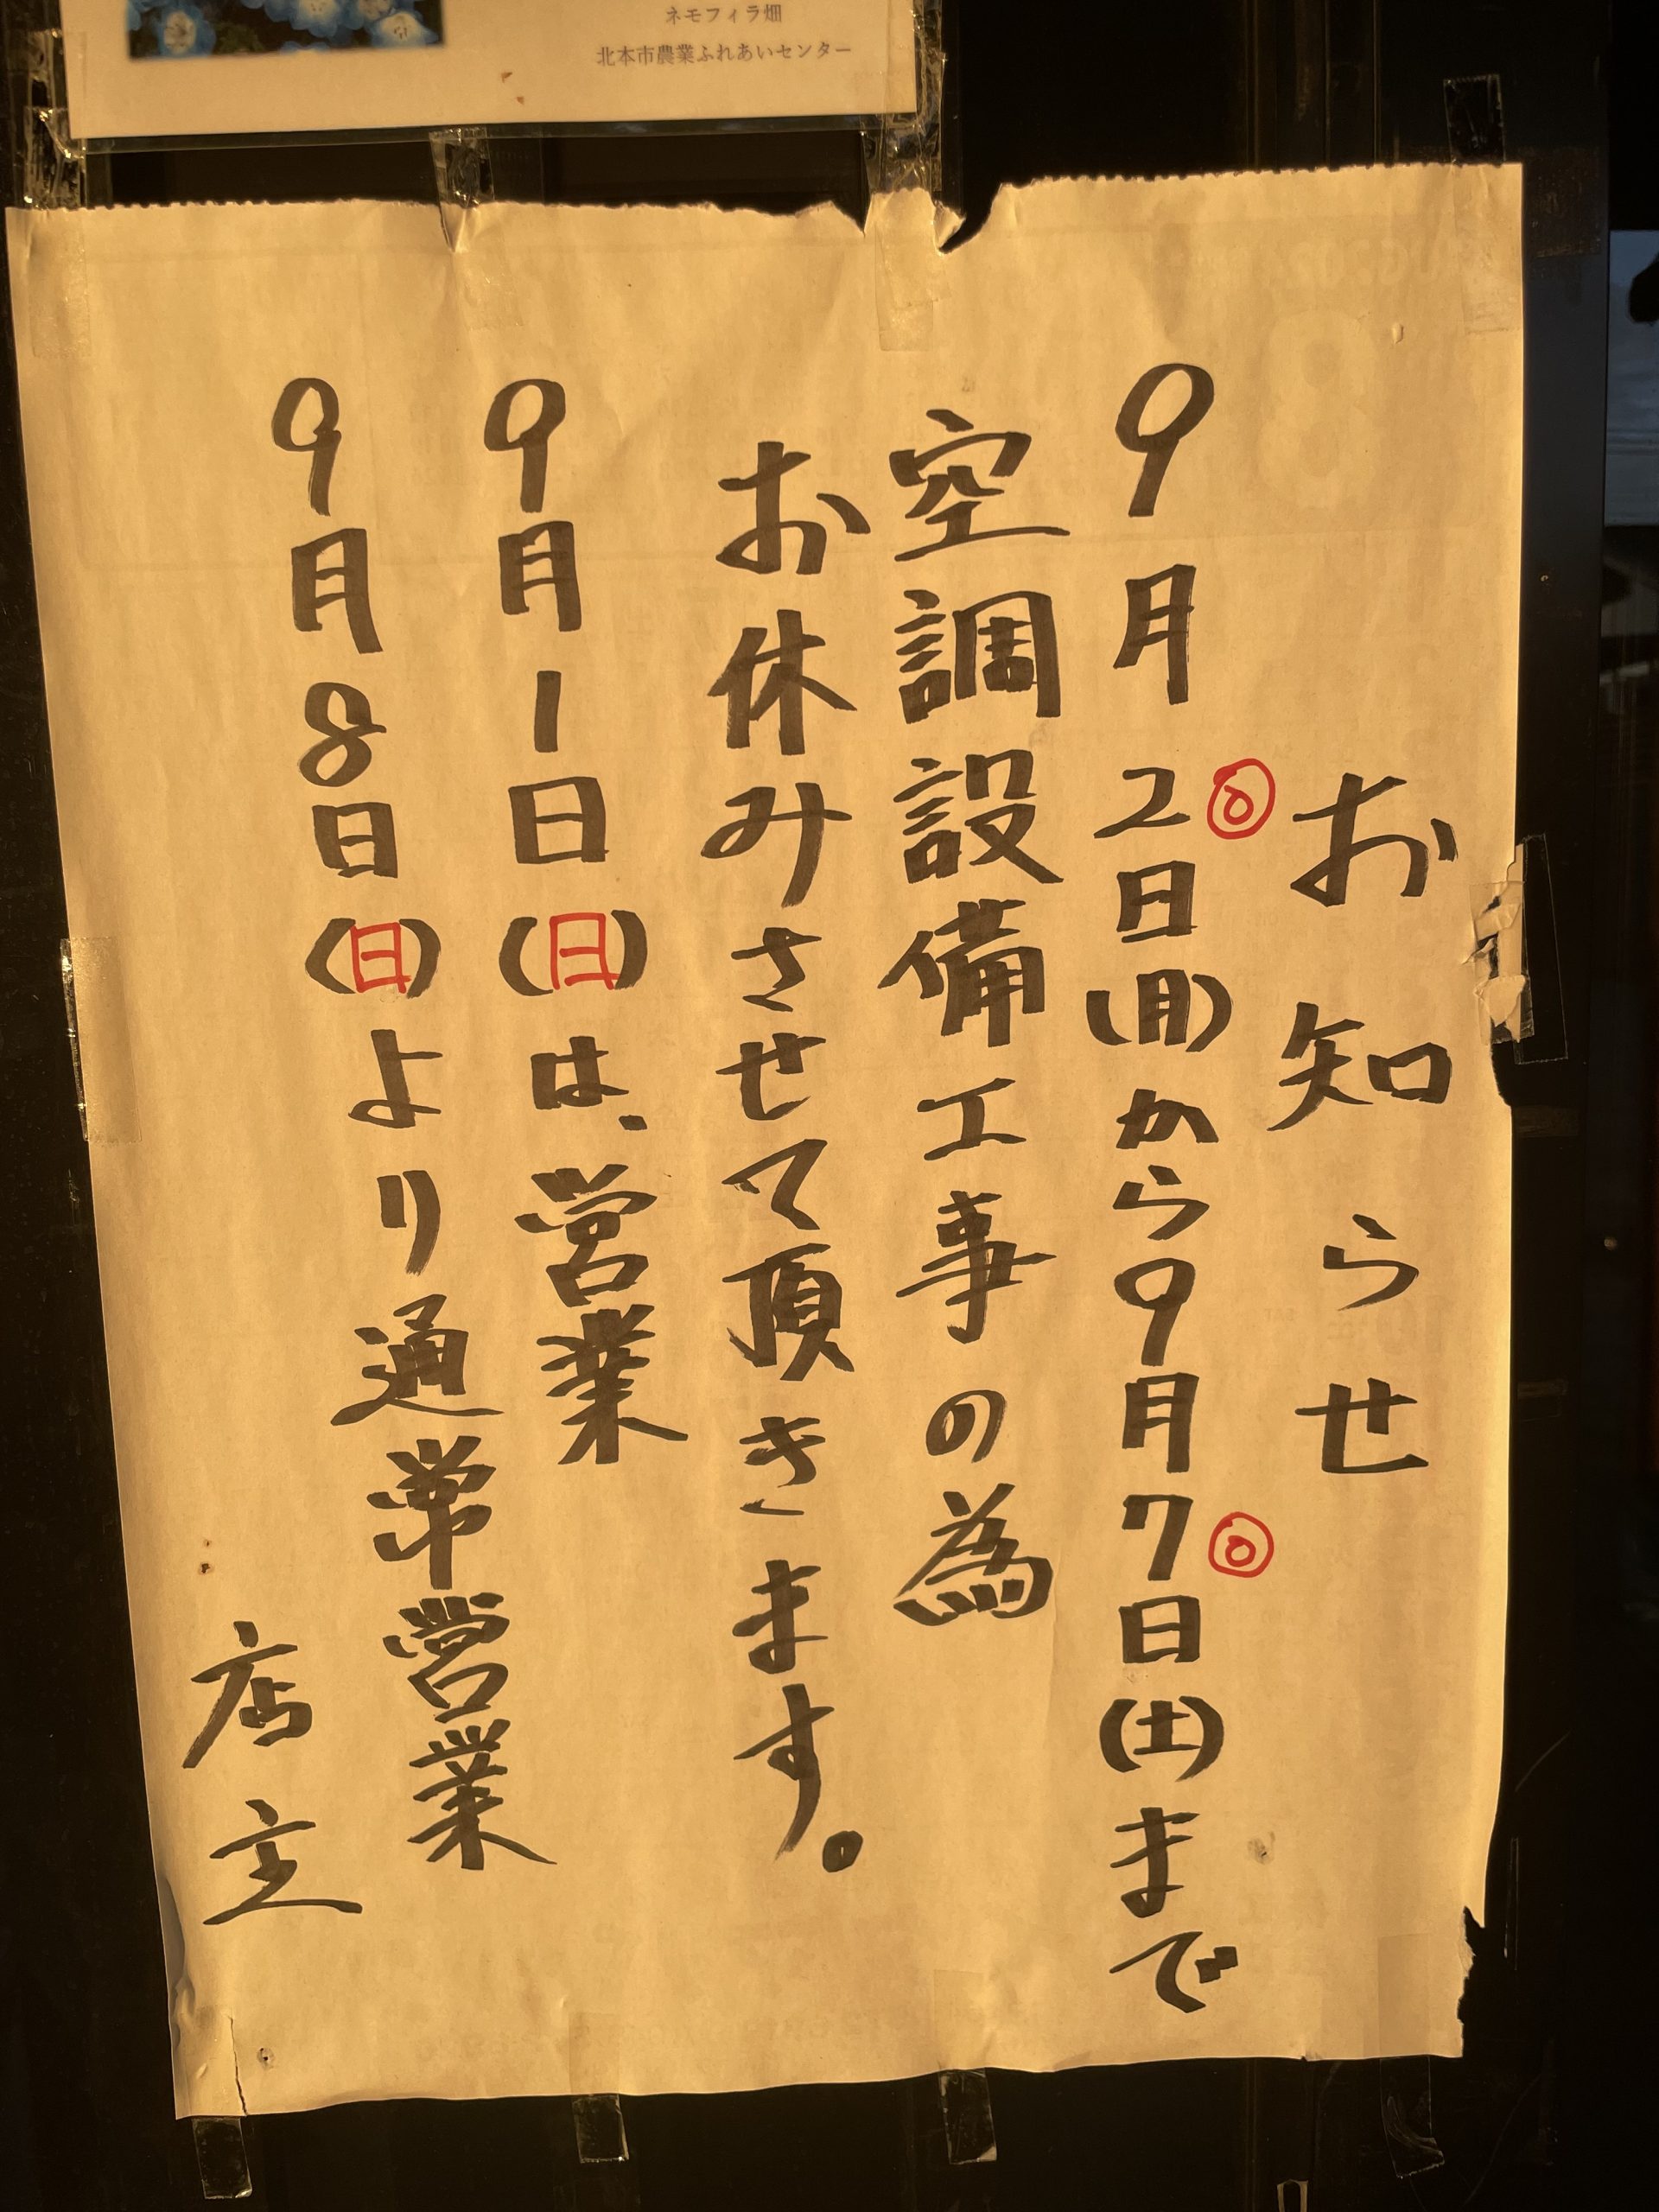 ネモフィラ畑
北本市農業ふれあいセンター
お知らせ
9月2日(月)から9月7日(土)まで
空調設備工事の為
お休みさせて頂きます。
9月1日(日)は、営業
9月8日(日)より通常営業
店主